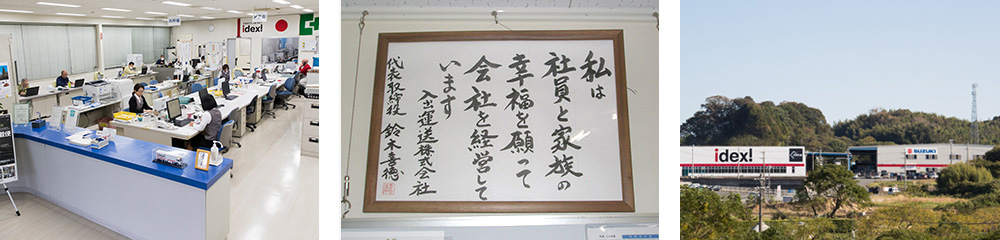 idex!
私は
社員と家族の
幸福を願って
会社を経営して
います
入出運送株式会社
代表取締役 鈴木喜徳
idex!
SUZUKI